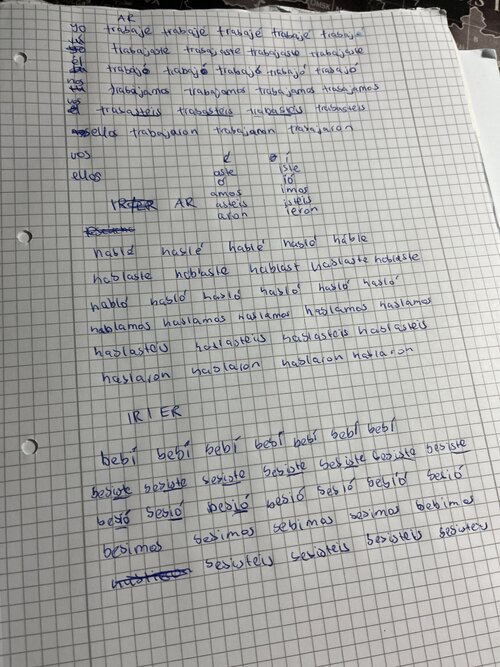 AR
yo trabajé trabajé trabajé trabajé trabajé
tú trabajaste trabajaste trabajaste trabajaste
él trabajó trabajó trabajó trabajó trabajó
nos trabajamos trabajamos trabajamos trabajamos
vos trabasteis trabasteis trabasteis trabasteis
ellos trabajaron trabajaron trabajaron
vos é í
ellos aste iste
ó ió
amos imos
IR AR asteis isteis
aron ieron
hablé hablé hablé habló háble
hablaste hablaste hablast hablaste hablaste
habló habló habló habló habló habló
hablamos hablamos hablamos hablamos hablamos
hablasteis hablasteis hablasteis hablasteis
hablaron hablaron hablaron hablaron
IR I ER
bebí bebí bebí bebí bebí bebí bebí
bebiste bebiste bebiste bebiste bebiste bebiste bebiste
bebió bebió bebió bebió bebió bebió bebió
bebimos bebimos bebimos bebimos bebimos
bebisteis bebisteis bebisteis bebisteis